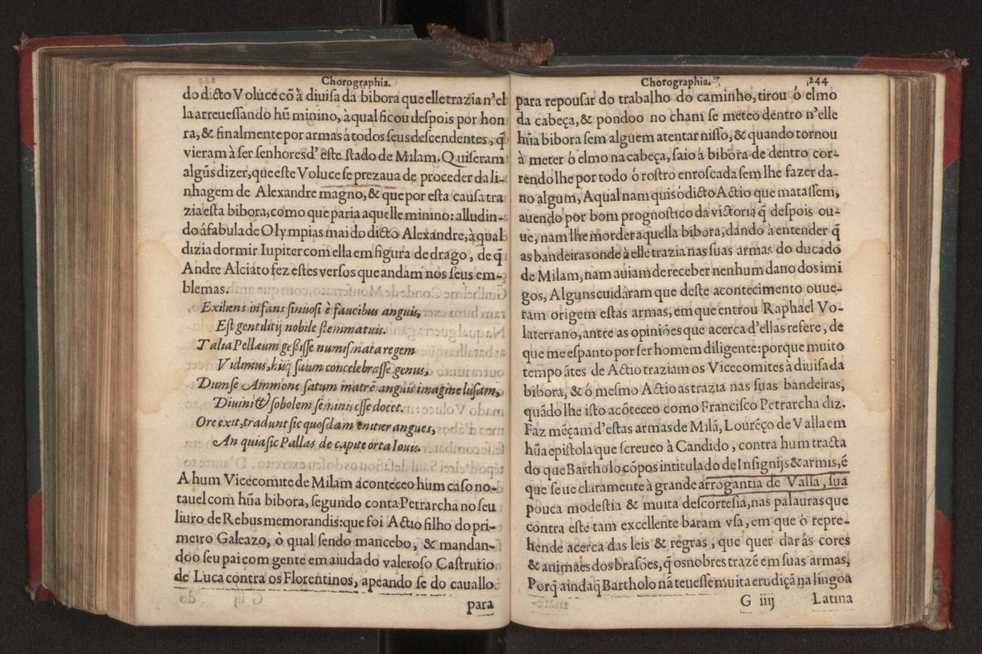 Chorographia.
do dicto Voluce cõ à diuisa da bibora que elle trazia n'el
la atreuessando hũ minino, à qual ficou despois por hon
ra, & finalmente por armas à todos seus descendentes, q̃
vieram à ser senhores d'este stado de Milam. Quiseram
algũs dizer, que este Voluce se prezaua de proceder da li-
nhagem de Alexandre magno, & que por esta causa tra
zia esta bibora, como que paria aquelle minino: alludin-
do á fabula de Olympias mai do dicto Alexandre, à qual
dizia dormir Iupiter com ella em figura de drago, de q̃
Andre Alciato fez estes versos que andam nos seus em-
blemas.
Exiliens infans sinuosi è faucibus anguis,
Est gentilitij nobile stemmatuis.
Talia Pellæum gessisse numismata regem
Vidimus, hisq́ suum concelebrasse genus,
Dum se Ammone satum matrẽ anguis imagine lusam,
Diuini & sobolem seminis esse docet.
Ore exit, tradunt sic quosdam enitier angues,
An quia sic Pallas de capite orta Ioue.
A hum Vicecomite de Milam aconteceo hum caso no-
tauel com hũa bibora, segundo conta Petrarcha no seu
liuro de Rebus memorandis: que foi Actio filho do pri-
meiro Galeazo, ò qual sendo mancebo, & mandan-
doo seu pai com gente em aiuda do valeroso Castrutio
de Luca contra os Florentinos, apeando se do cauallo
para
Chorographia.
244
para repousar do trabalho do caminho, tirou ó elmo
da cabeça, & pondoo no cham se meteo dentro n'elle
hũa bibora sem alguem atentar nisso, & quando tornou
à meter ó elmo na cabeça, saio à bibora de dentro cor-
rendo lhe por todo ó rostro enroscada sem lhe fazer da-
no algum, A qual nam quis ò dicto Actio que matassem,
auendo por bom prognostico da victoria q̃ despois ou-
ue, nam lhe morder aquella bibora, dando à entender q̃
as bandeiras onde à elle trazia nas suas armas do ducado
de Milam, nam auiam de receber nenhum dano dos imi
gos, Alguns cuidaram que deste acontecimento ouue-
ram origem estas armas, em que entrou Raphael Vo-
laterrano, antre as opiniões que acerca d'ellas refere, de
que me espanto por ser homem diligente: porque muito
tempo ãtes de Actio traziam os Vicecomites à diuisa da
bibora, & ó mesmo Actio as trazia nas suas bandeiras,
quãdo lhe isto acõteceo como Francisco Petrarcha diz.
Faz mẽçam d'estas armas de Milã, Lourẽço de Valla em
hũa epistola que screueo à Candido, contra hum tracta
do que Bartholo cõpos intitulado de Insignijs & armis, ẽ
que se ue claramente à grande arrogantia de Valla, sua
pouca modestia & muita descortesia, nas palauras que
contra este tam excellente baram vsa, em que ò repre-
hende acerca das leis & regras, que quer dar ás cores
& animães dos brasões, q̃ os nobres trazẽ em suas armas,
Porq̃ ainda q̃ Bartholo nã teuesse muita erudiçã na lingoa
G iiij
Latina